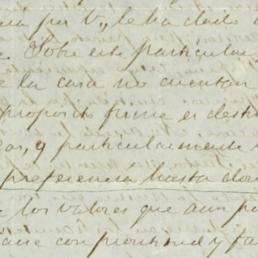 por V., le ha dado
Sobre este particular
la casa no cuentan
proposito firme es
y particularmente
preferencia hasta
los valores que aun
con prontitud y